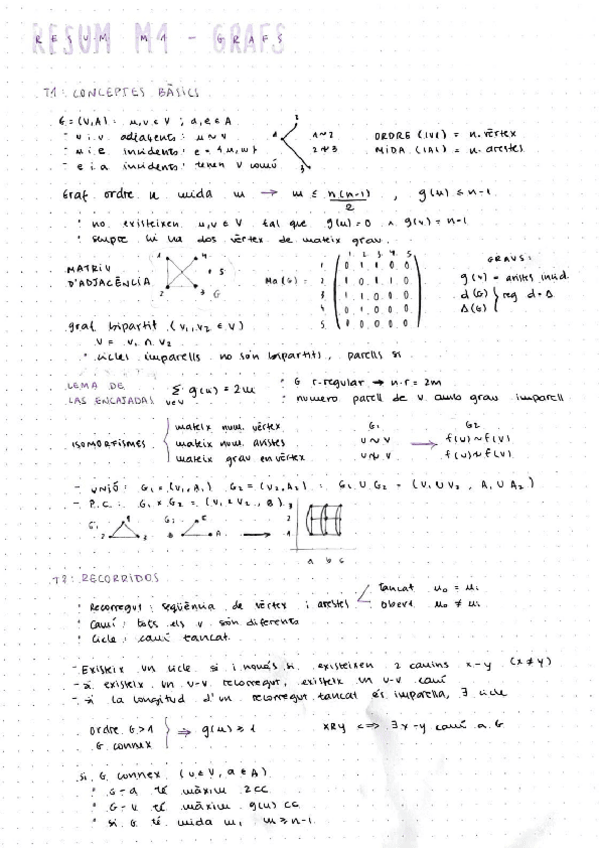 RESUM M1 - GRAFS
T1: CONCEPTES BÀSICS
G = (V,A) : u,v ∈ V ; a,e ∈ A
- u i v adjaçents: u ~ v
1 ~ 2
ORDRE (|V|) = n. vèrtex
- u i e incidents: e = {u, w}
2 ≁ 3
MIDA (|A|) = n. arestes
- e i a incidents: tenen V comú
Graf ordre n mida m → m ≤ n(n-1)/2 , g(u) ≤ n-1
· no existeixen u,v ∈ V tal que g(u)=0 ∧ g(v) = n-1
· sempre hi ha dos vèrtex de mateix grau.
MATRIU D'ADJACÈNCIA
1 4 5 2 3 G
Ma(G) =
1 2 3 4 5
1 0 1 0 0
1 0 1 0 0
0 0 0 0 0
GRAUS:
g(v) = arestes incid.
d(G)
Δ(G)
reg d=Δ
graf bipartit (V₁,V₂ ∈ V)
V = V₁ ∩ V₂
· cicles imparells no són bipartits, parells sí
LEMA DE LAS ENCAJADAS
Σ g(u) = 2m
u∈V
· G r-regular → n·r = 2m
· numero parell de v. amb grau imparell
ISOMORFISMES
mateix num. vèrtex
mateix num. arestes
mateix grau en vèrtex
G₁ G₂
u ~ v → f(u) ~ f(v)
u ≁ v f(u) ≁ f(v)
- UNIÓ: G₁ = (V₁, A₁) G₂ = (V₂, A₂) : G₁ ∪ G₂ = (V₁ ∪ V₂, A₁ ∪ A₂)
- P.C.: G₁ × G₂ = (V₁ × V₂, B)
G₁ 1 2 3 G₂ C B A → 3 2 1
a b c
T2: RECORRIDOS
· Recorregut: seqüència de vèrtex i arestes
Tancat u₀ = uᵢ
Obert u₀ ≠ uᵢ
· Camí: tots els v són diferents
· Cicle: camí tancat
- Existeix un cicle si i només si existeixen 2 camins x-y (x≠y)
- si existeix un u-v recorregut, existeix un u-v camí
- si la longitud d'un recorregut tancat és imparella, ∃ cicle
ordre G > 1
G connex
⇒ g(u) ≥ 1
xRy <=> ∃ x-y camí a G
si G connex (u ∈ V, a ∈ A)
· G-a té màxim 2CC
· G-u té màxim g(u) CC
· si G té mida m, m ≥ n-1